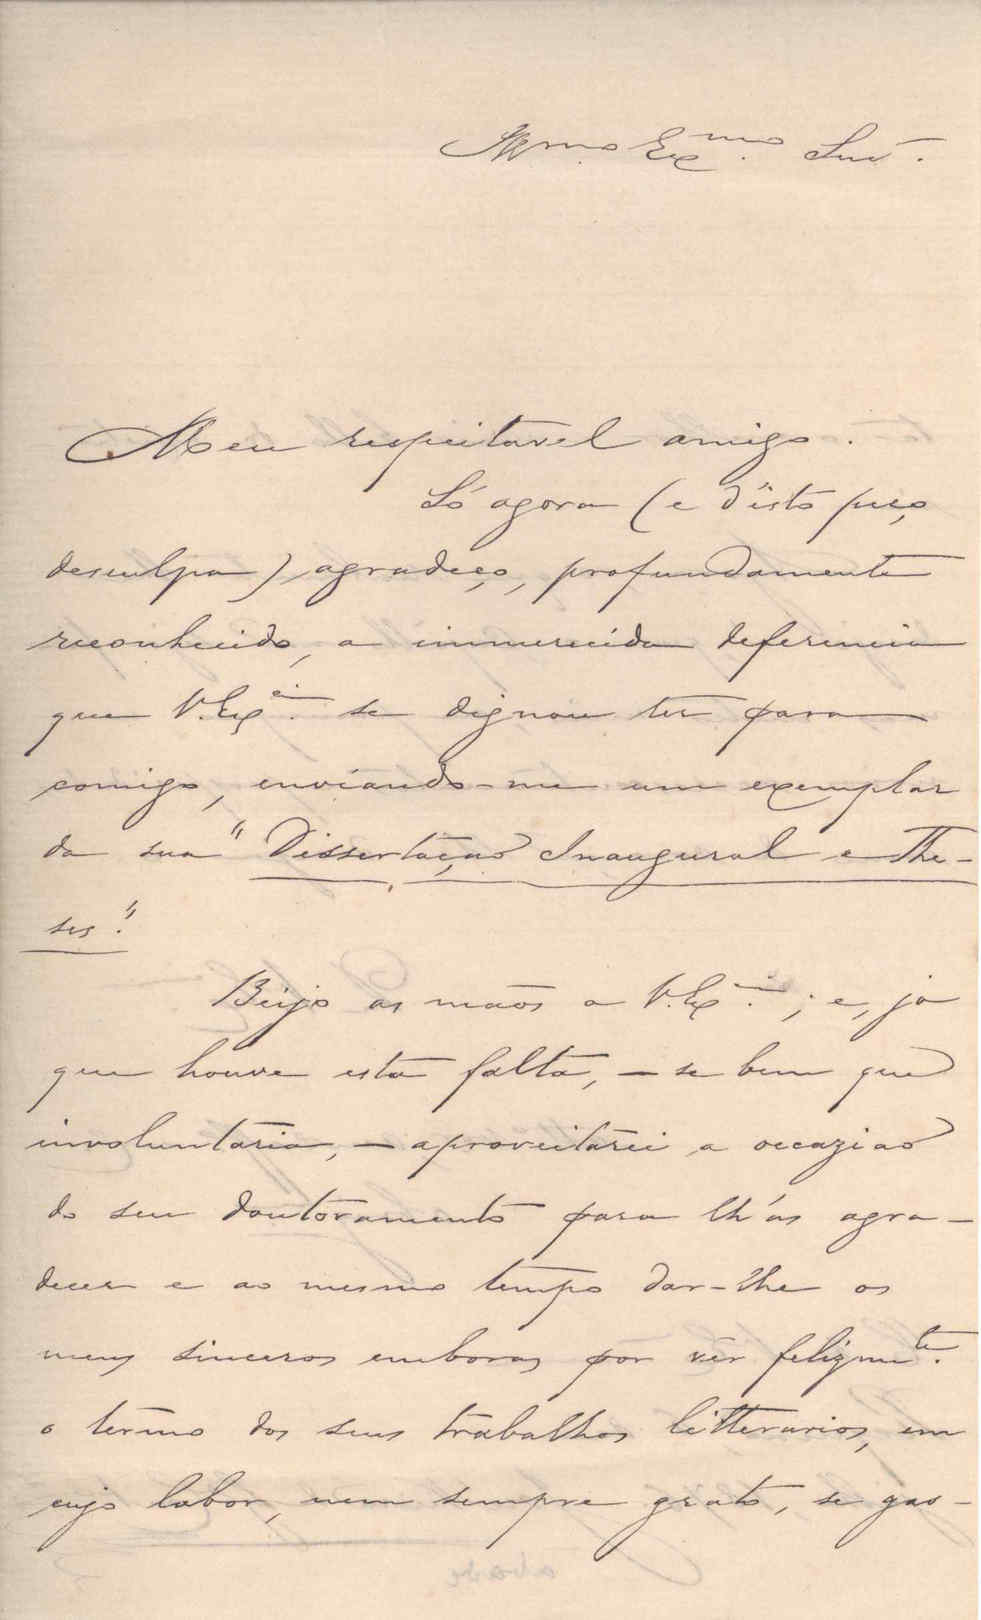 Illmo Exmo. Snr.
Meu respeitavel amigo.
Só agora (e d'isto peço
desculpa) agradeço, profundamente
reconhecido, a immerecida deferencia
que V. Excia. se dignou ter para
comigo, enviando-me um exemplar
da sua "Dissertação Inaugural e The-
ses".
Beijo as mãos a V. Excia.; e, ja
que houve esta falta, – se bem que
involuntaria, – aproveitarei a occazião
do seu doutoramento para lh'as agra-
decer e ao mesmo tempo dar-lhe os
meus sinceros emboras por vêr felizmte.
o termo dos seus trabalhos litterarios, em
cujo labor, nem sempre grato, se gas-